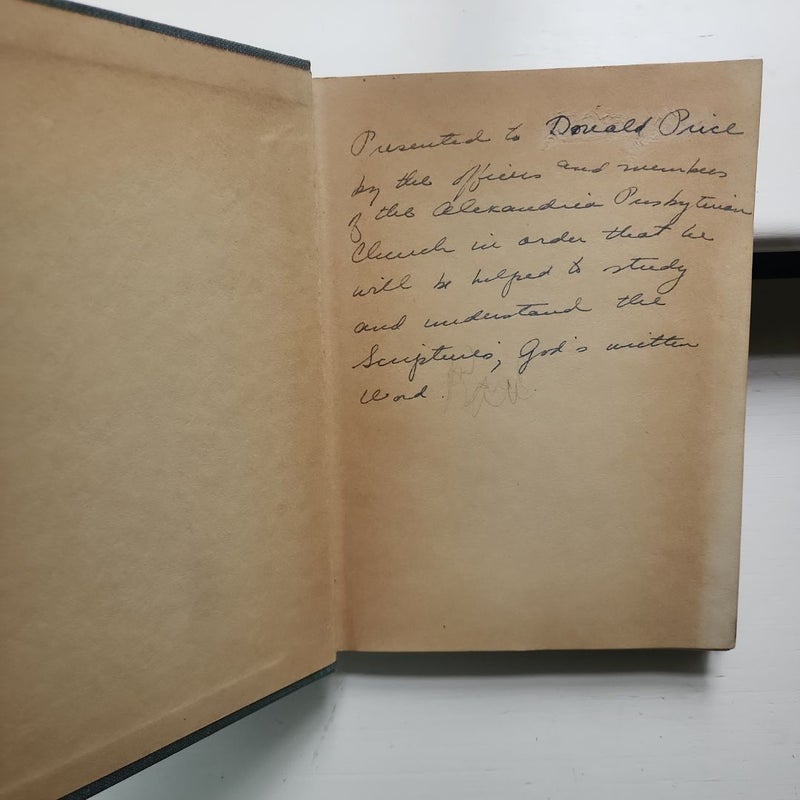 Presented to Donald Price
by the officers and members
of the Alexandria Presbyterian
Church in order that he
will be helped to study
and understand the
Scriptures, God's written
Word.